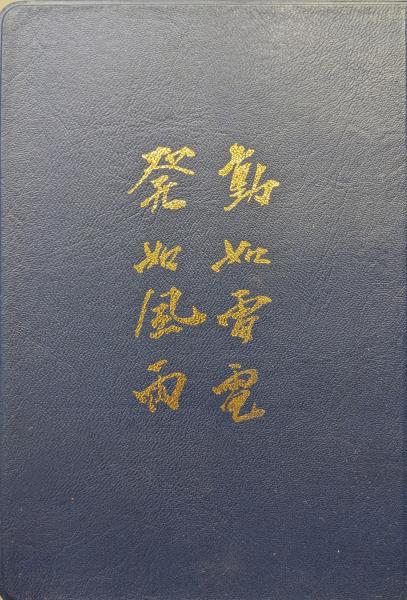 動如雷電
發如風雨